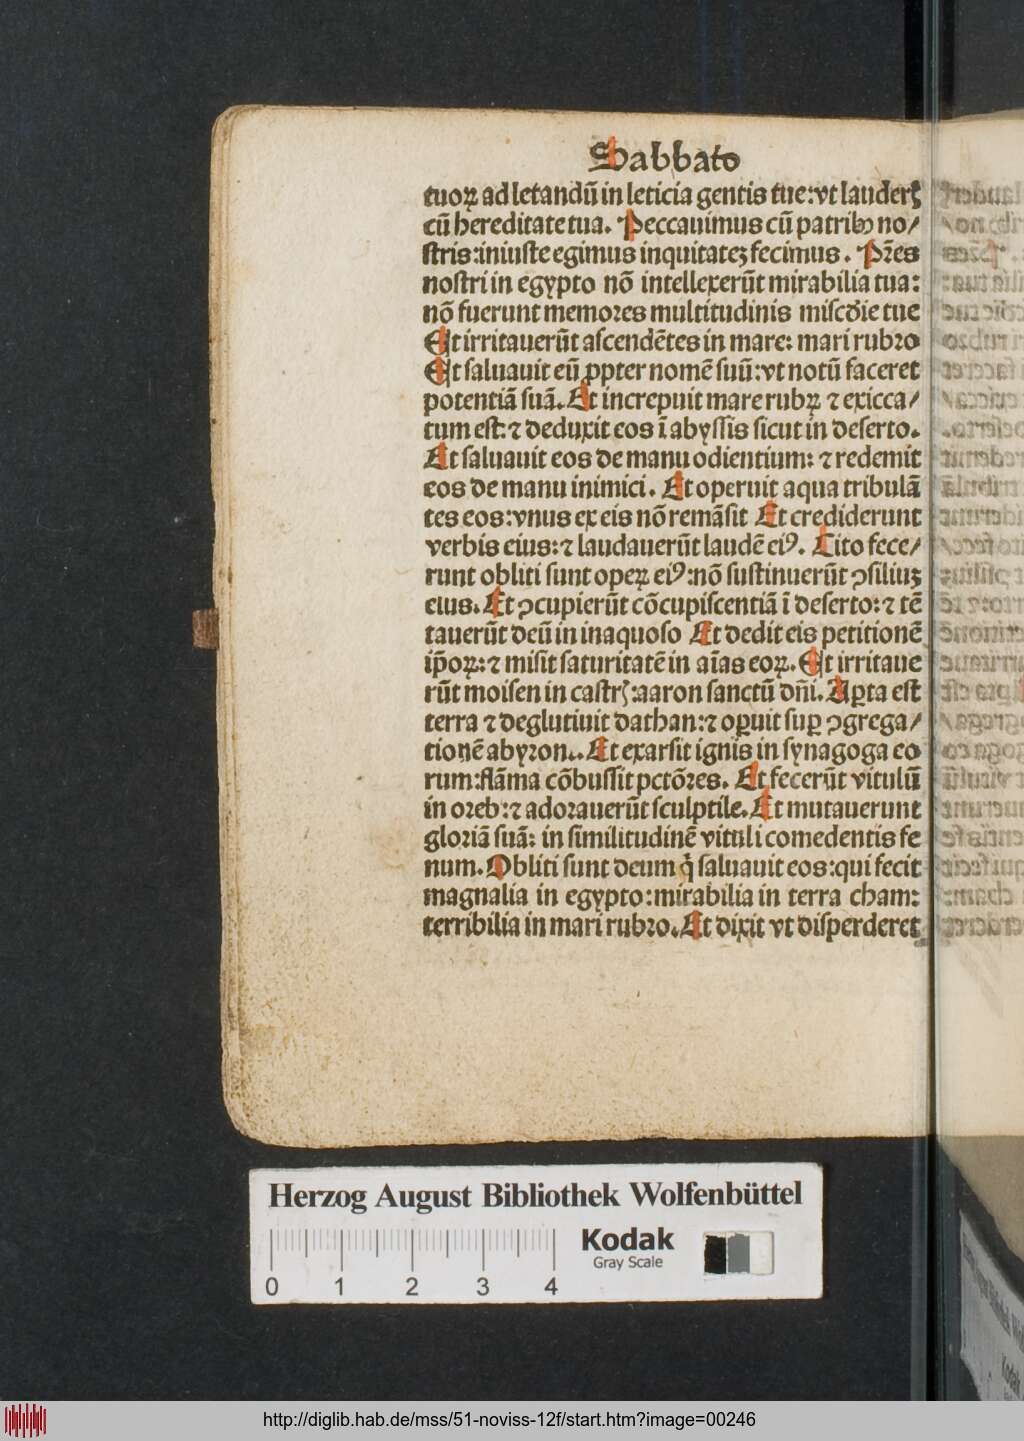 Sabbato
tuoꝝ ad letandū in leticia gentis tue:vt lauderꝭ
cū hereditate tua. Peccauimus cū patribꝰ no/
stris:iniuste egimus inquitateʒ fecimus. Pr̄es
nostri in egypto nō intellexerūt mirabilia tua:
nō fuerunt memores multitudinis misc̄die tue
Et irritauerūt ascendētes in mare: mari rubro
Et saluauit eū ꝓpter nomē suū:vt notū faceret
potentiā suā. Et increpuit mare rubꝝ ⁊ exicca/
tum est:⁊ deduxit eos ī abyssis sicut in deserto.
Et saluauit eos de manu odientium: ⁊ redemit
eos de manu inimici. Et operuit aqua tribulā
tes eos:vnus ex eis nō remāsit Et crediderunt
verbis eius:⁊ laudauerūt laudē eiꝰ. Cito fece/
runt obliti sunt opeꝝ eiꝰ:nō sustinuerūt ꝯsiliuʒ
eius. Et ꝯcupierūt cōcupiscentiā ī deserto:⁊ tē
tauerūt deū in inaquoso Et dedit eis petitionē
ip̄oꝝ:⁊ misit saturitatē in aīas eoꝝ. Et irritaue
rūt moisen in castrꝭ:aaron sanctū dn̄i. Aꝑta est
terra ⁊ deglutiuit dathan:⁊ oꝑuit suꝑ ꝯgrega/
tionē abyron. Et exarsit ignis in synagoga eo
rum:flāma cōbussit pctōres. Et fecerūt vitulū
in oreb:⁊ adorauerūt sculptile. Et mutauerunt
gloriā suā: in similitudinē vituli comedentis fe
num. Obliti sunt deum q̇ saluauit eos:qui fecit
magnalia in egypto:mirabilia in terra cham:
terribilia in mari rubro. Et dixit vt disperderet
Herzog August Bibliothek Wolfenbüttel
Kodak
Gray Scale
0 1 2 3 4
http://diglib.hab.de/mss/51-noviss-12f/start.htm?image=00246